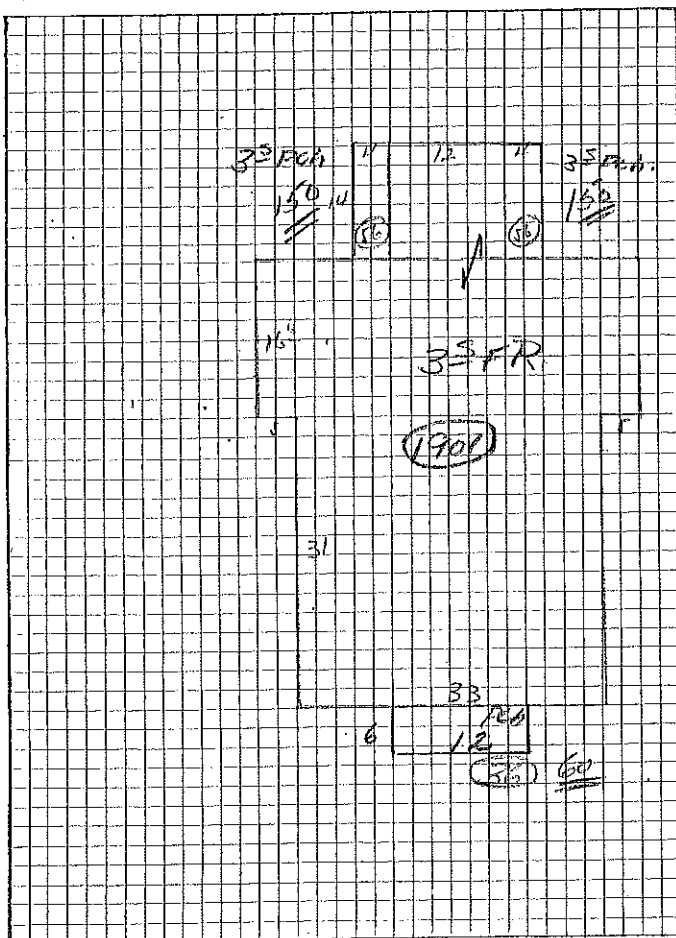 3 S PCH 11 12 11 3 S Pch.
150 14 150
56 56
16
3 S FR
1901
31
33
6 12 Pch
60